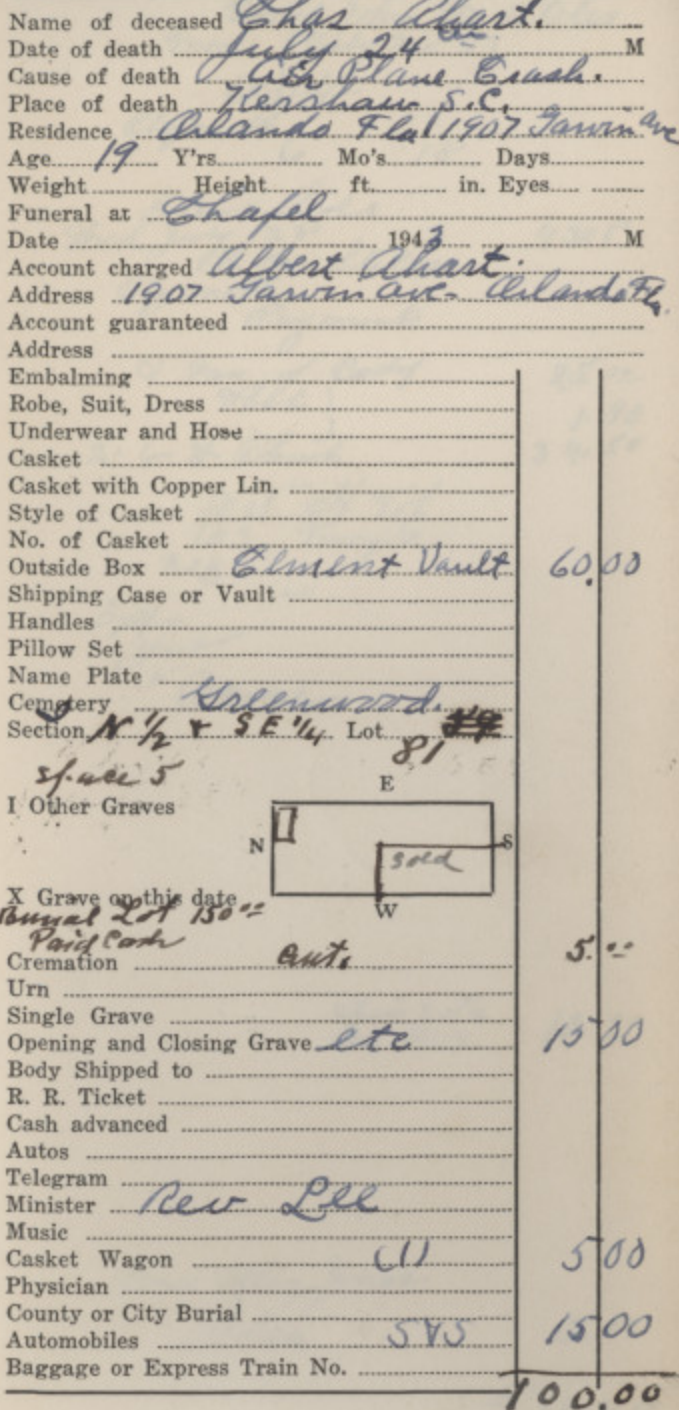 Name of deceased Chas Ahart.
Date of death July 24 M
Cause of death Air Plane Crash.
Place of death Kershaw S.C.
Residence Orlando Fla 1907 Garvin Ave
Age 19 Y'rs Mo's Days
Weight Height ft. in. Eyes
Funeral at Chapel
Date 1943 M
Account charged Albert Ahart.
Address 1907 Garvin Ave - Orlando Fla.
Account guaranteed
Address
Embalming
Robe, Suit, Dress
Underwear and Hose
Casket
Casket with Copper Lin.
Style of Casket
No. of Casket
Outside Box Cement Vault 60.00
Shipping Case or Vault
Handles
Pillow Set
Name Plate
Cemetery Greenwood.
Section N 1/2 & SE 1/4 Lot 81
Space 5
E
I Other Graves
N S
Sold
X Grave on this date
W
Burial Lot 150 00
Paid Cash
Cremation 5.00
Urn
Single Grave
Opening and Closing Grave etc 15 00
Body Shipped to
R. R. Ticket
Cash advanced
Autos
Telegram
Minister Rev Lee
Music
Casket Wagon (1) 5 00
Physician
County or City Burial
Automobiles 15 00
Baggage or Express Train No.
100.00